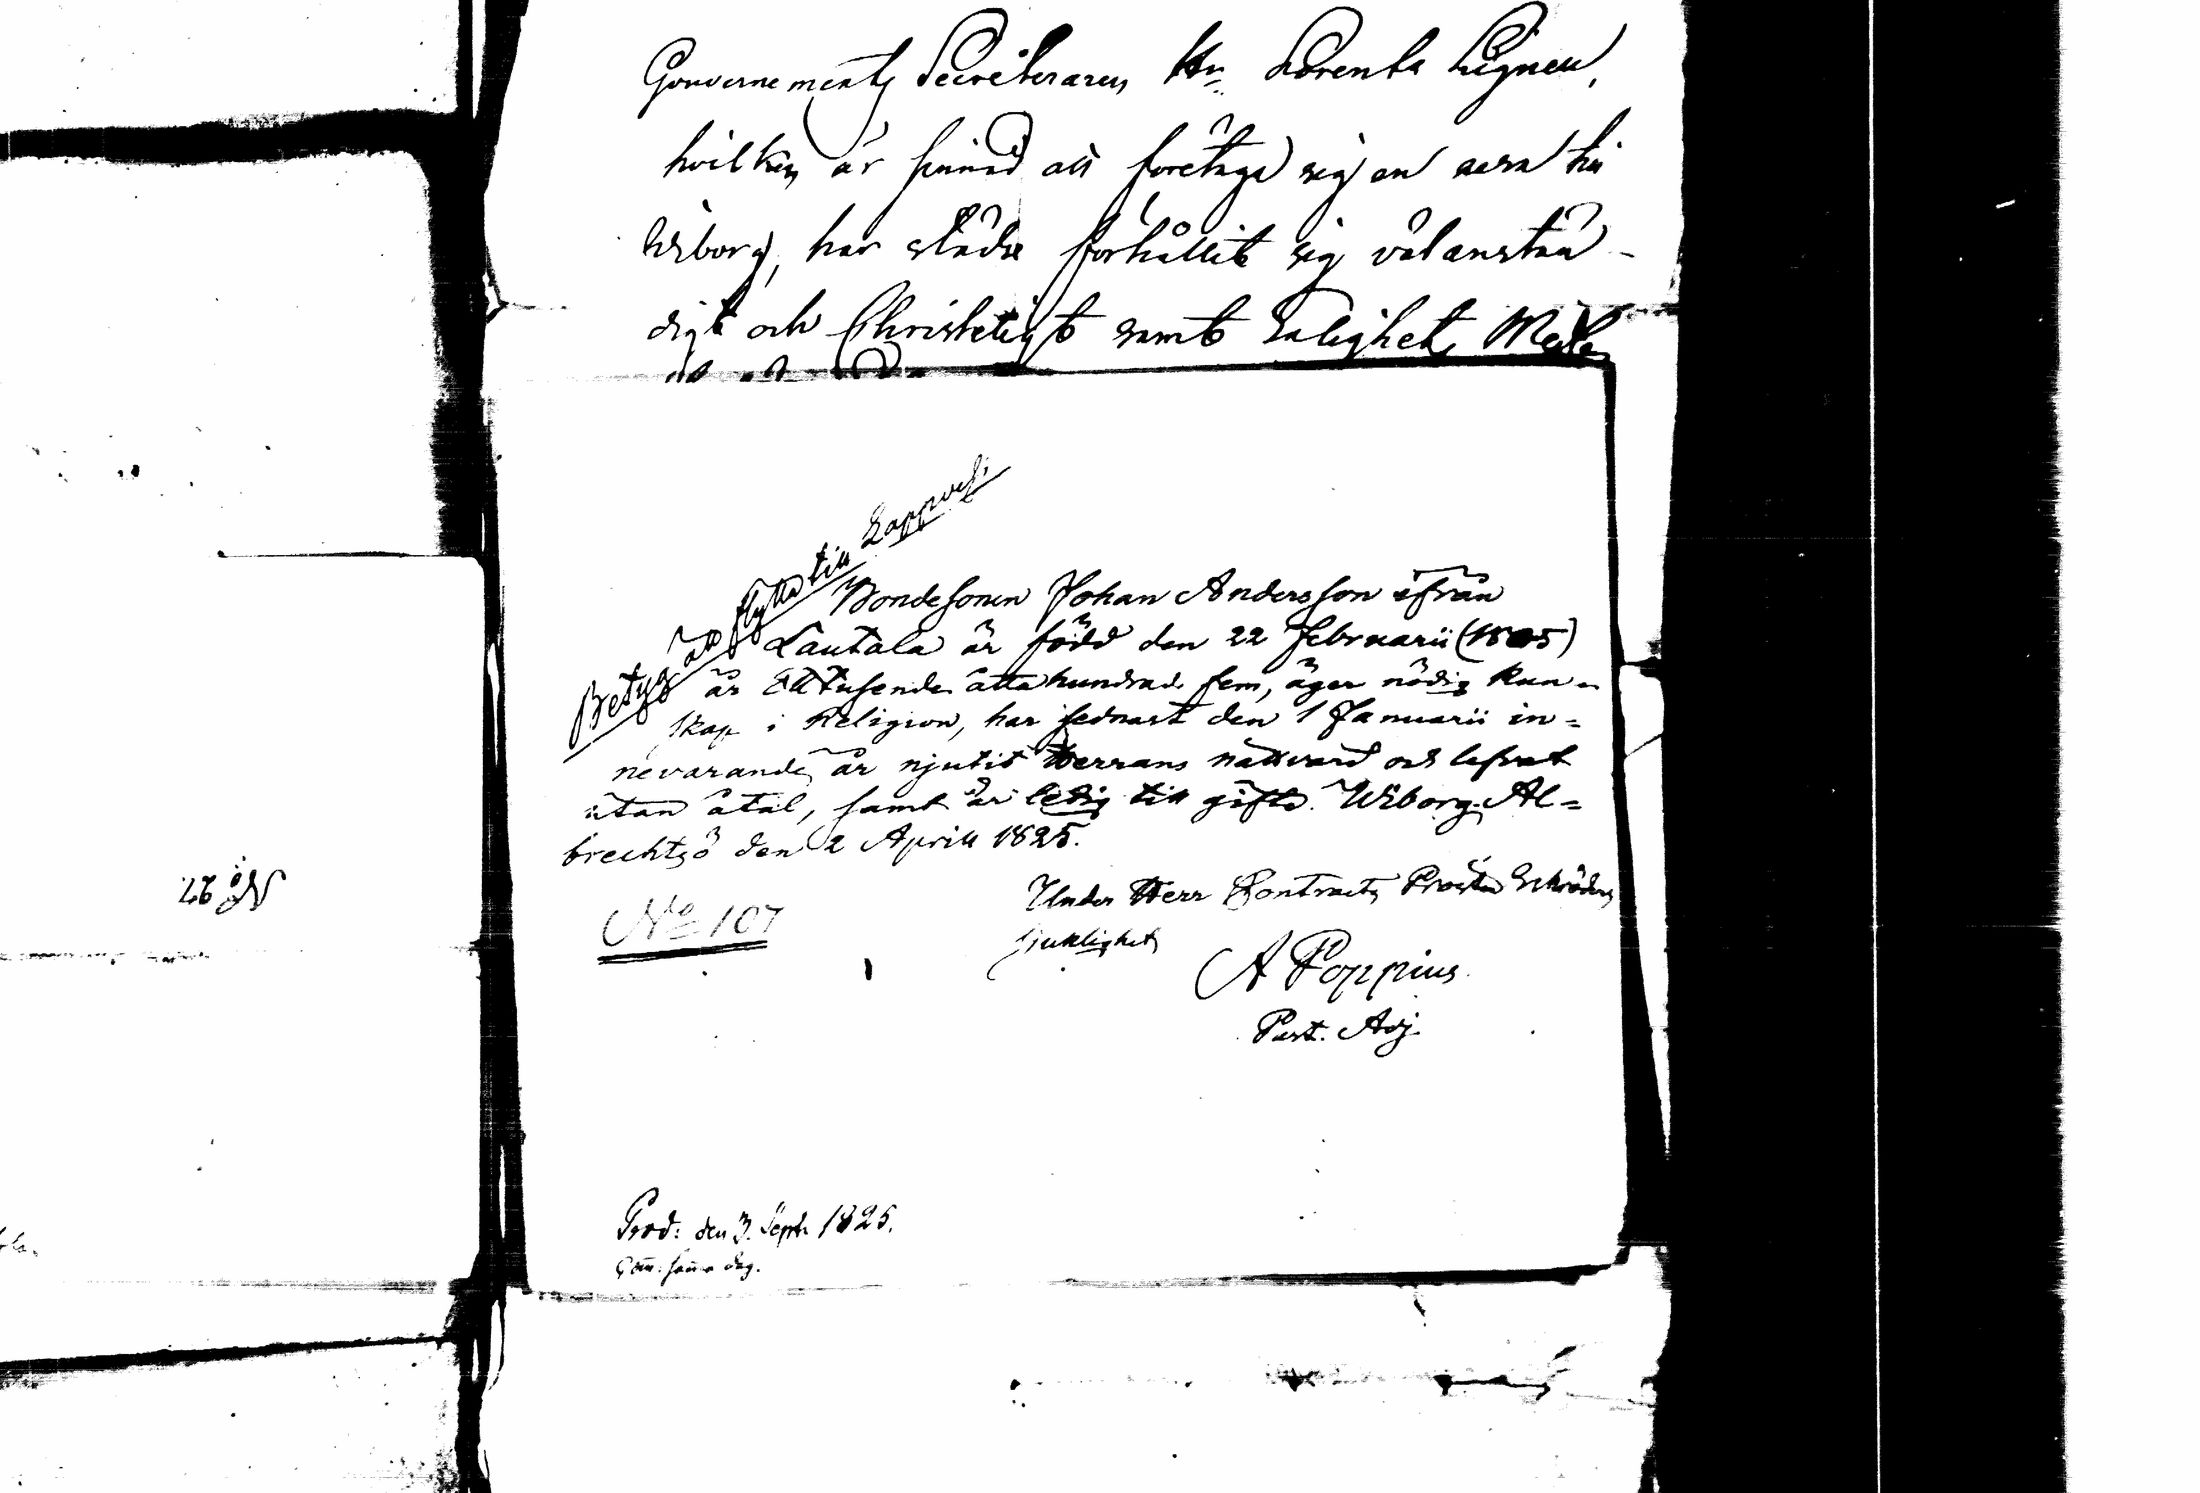 Gouvernements Secreteraren Hr Lorentz Lignell,
hvilken är sinnad att företaga sig en resa till
Wiborg, har städse förhållit sig välanstän-
digt och Christeligt samt Salighets Medlen
Betyg att flytta till Lappvesi
Bondesonen Johan Andersson ifrån
Lautala är född den 22 Februarii (1805)
år Ettusende åttahundrade fem, äger nödig kun=
skap i Religion, har sednast den 1 Januarii in=
nevarande år njutit Herrans nattvard och lefvat
utan åtal, samt är ledig till gifte. Wiborg. Al=
brechtsö den 2 Aprill 1825.
Under Herr Contracts Prosten Schröders
sjuklighet
A Poppius
Past. Adj.
No 107
Prod: den 3. Septr 1825.
Com: samma dag.
No 27.